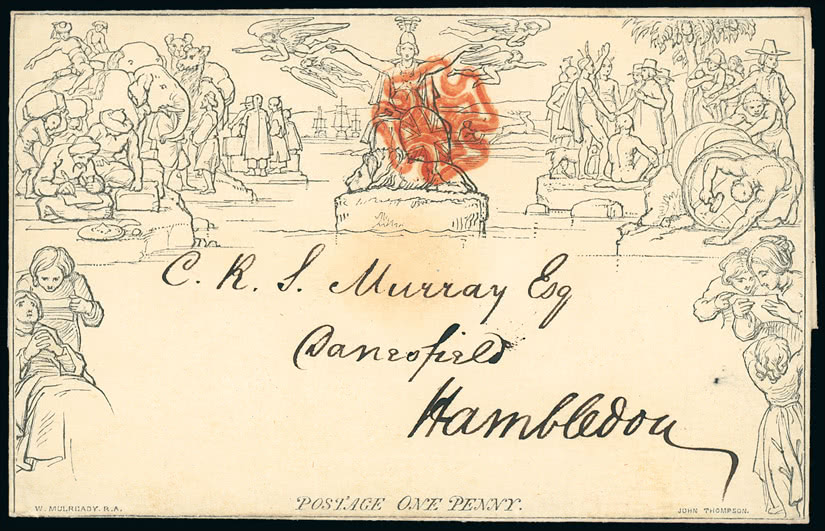 C. R. S. Murray Esq
Danesfield
Hambledon
W. MULREADY. R.A.
POSTAGE ONE PENNY.
JOHN THOMPSON.